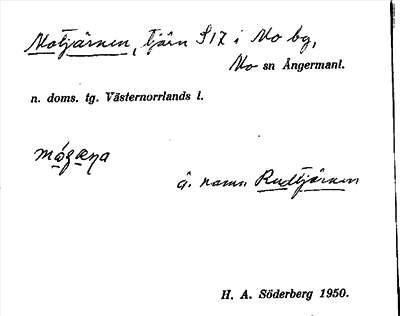 Motjärnen, tjärn S17 i Mo bg,
Mo sn Ångermanl.
n. doms. tg. Västernorrlands l.
å. namn Rudtjärnen
H. A. Söderberg 1950.